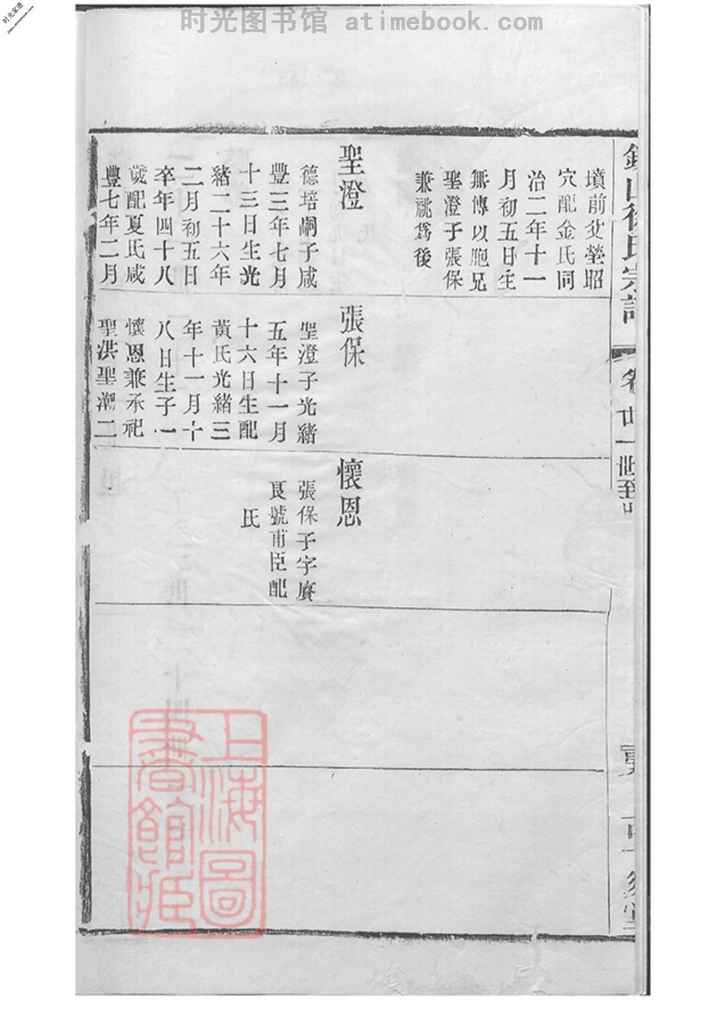 时光图书馆 atimebook.com
墳前父塋昭
穴配金氏同
治二年十一
月初五日生
無傳以胞兄
聖澄子張保
兼祧為後
聖澄
德培嗣子咸
豐三年七月
十三日生光
緒二十六年
二月初五日
卒年四十八
歲配夏氏咸
豐七年二月
張保
聖澄子光緒
五年十一月
十六日生配
黃氏光緒三
年十一月十
八日生子一
懷恩兼承祀
聖洪聖潮二
懷恩
張保子字賡
良號甫臣配
氏
上海圖
書館藏